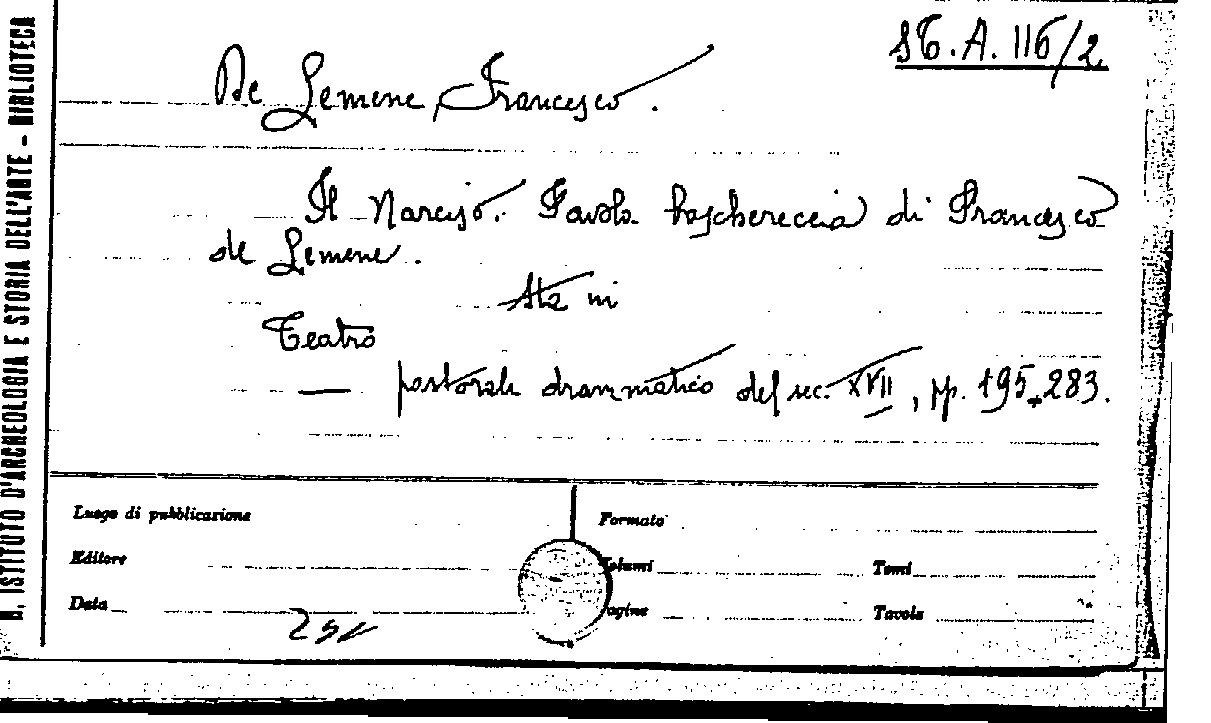 R. ISTITUTO D'ARCHEOLOGIA E STORIA DELL'ARTE - BIBLIOTECA
ST. A. 116/2
De Lemene, Francesco.
Il Narciso. Favola boschereccia di Francesco
de Lemene.
Sta in
Teatro
— pastorale drammatico del sec. XVII, pp. 195-283.
Luogo di pubblicazione
Formato
Editore
Volumi
Tomi
Data
Pagine
Tavole